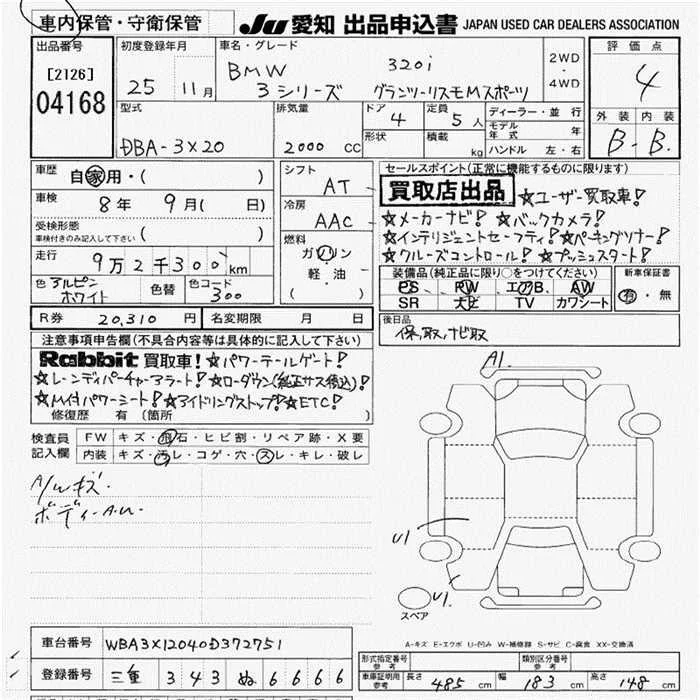 車内保管・守衛保管
JU 愛知 出品申込書 JAPAN USED CAR DEALERS ASSOCIATION
出品番号
[2126]
04168
初度登録年月
25 11月
車名・グレード
BMW 320i
3シリーズ グランツーリスモMスポーツ
2WD
・
4WD
評価点
4
外装 内装
B- B.
型式
DBA-3X20
排気量
2000 CC
ドア
4
形状
定員
5人
積載
kg
ディーラー・並行
モデル年式 年
ハンドル 左・右
車歴
自家用・( )
車検
8年 9月( 日)
受検形態
車検付きのみ記入して下さい ( )
走行
9万2千300km
色 アルピンホワイト
色替
色コード 300
シフト
AT
冷房
AAC
燃料
ガソリン
軽・油
( )
セールスポイント(正常に機能するものに限ります)
買取店出品 ☆ユーザー買取車!
☆メーカーナビ! ☆バックカメラ!
☆インテリジェントセーフティ! ☆パーキングソナー!
☆クルーズコントロール! ☆プッシュスタート!
装備品(純正品に限り○をつけてください)
PS PW エアB. AW
SR ナビ TV カワシート
新車保証書
有・無
R券 20,310円
名変期限 月 日
後日品
保,取,ナビ取
注意事項申告欄(不具合内容等は具体的に記入して下さい)
Rabbit 買取車! ☆パワーテールゲート!
☆レーンディパーチャーアラート! ☆ローダウン(純正サス積込)!
☆M付パワーシート! ☆アイドリングストップ! ☆ETC!
修復歴 有 〔箇所 〕
検査員
記入欄
FW キズ・飛石・ヒビ割・リペア跡・X要
内装 キズ・汚レ・コゲ・穴・スレ・キレ・破レ
A/wキズ.
ボディーA.U.
A1.
U1
U1.
スペア
A-キズ E-エクボ U-凹み W-補修跡 S-サビ C-腐食 XX-交換済
車台番号 WBA3X12040D372751
登録番号 三重 343 ぬ 6666
形式指定番号
参考
類別区分番号
参考
車庫証明用
参考
長さ 485 cm 幅 183 cm 高さ 148 cm